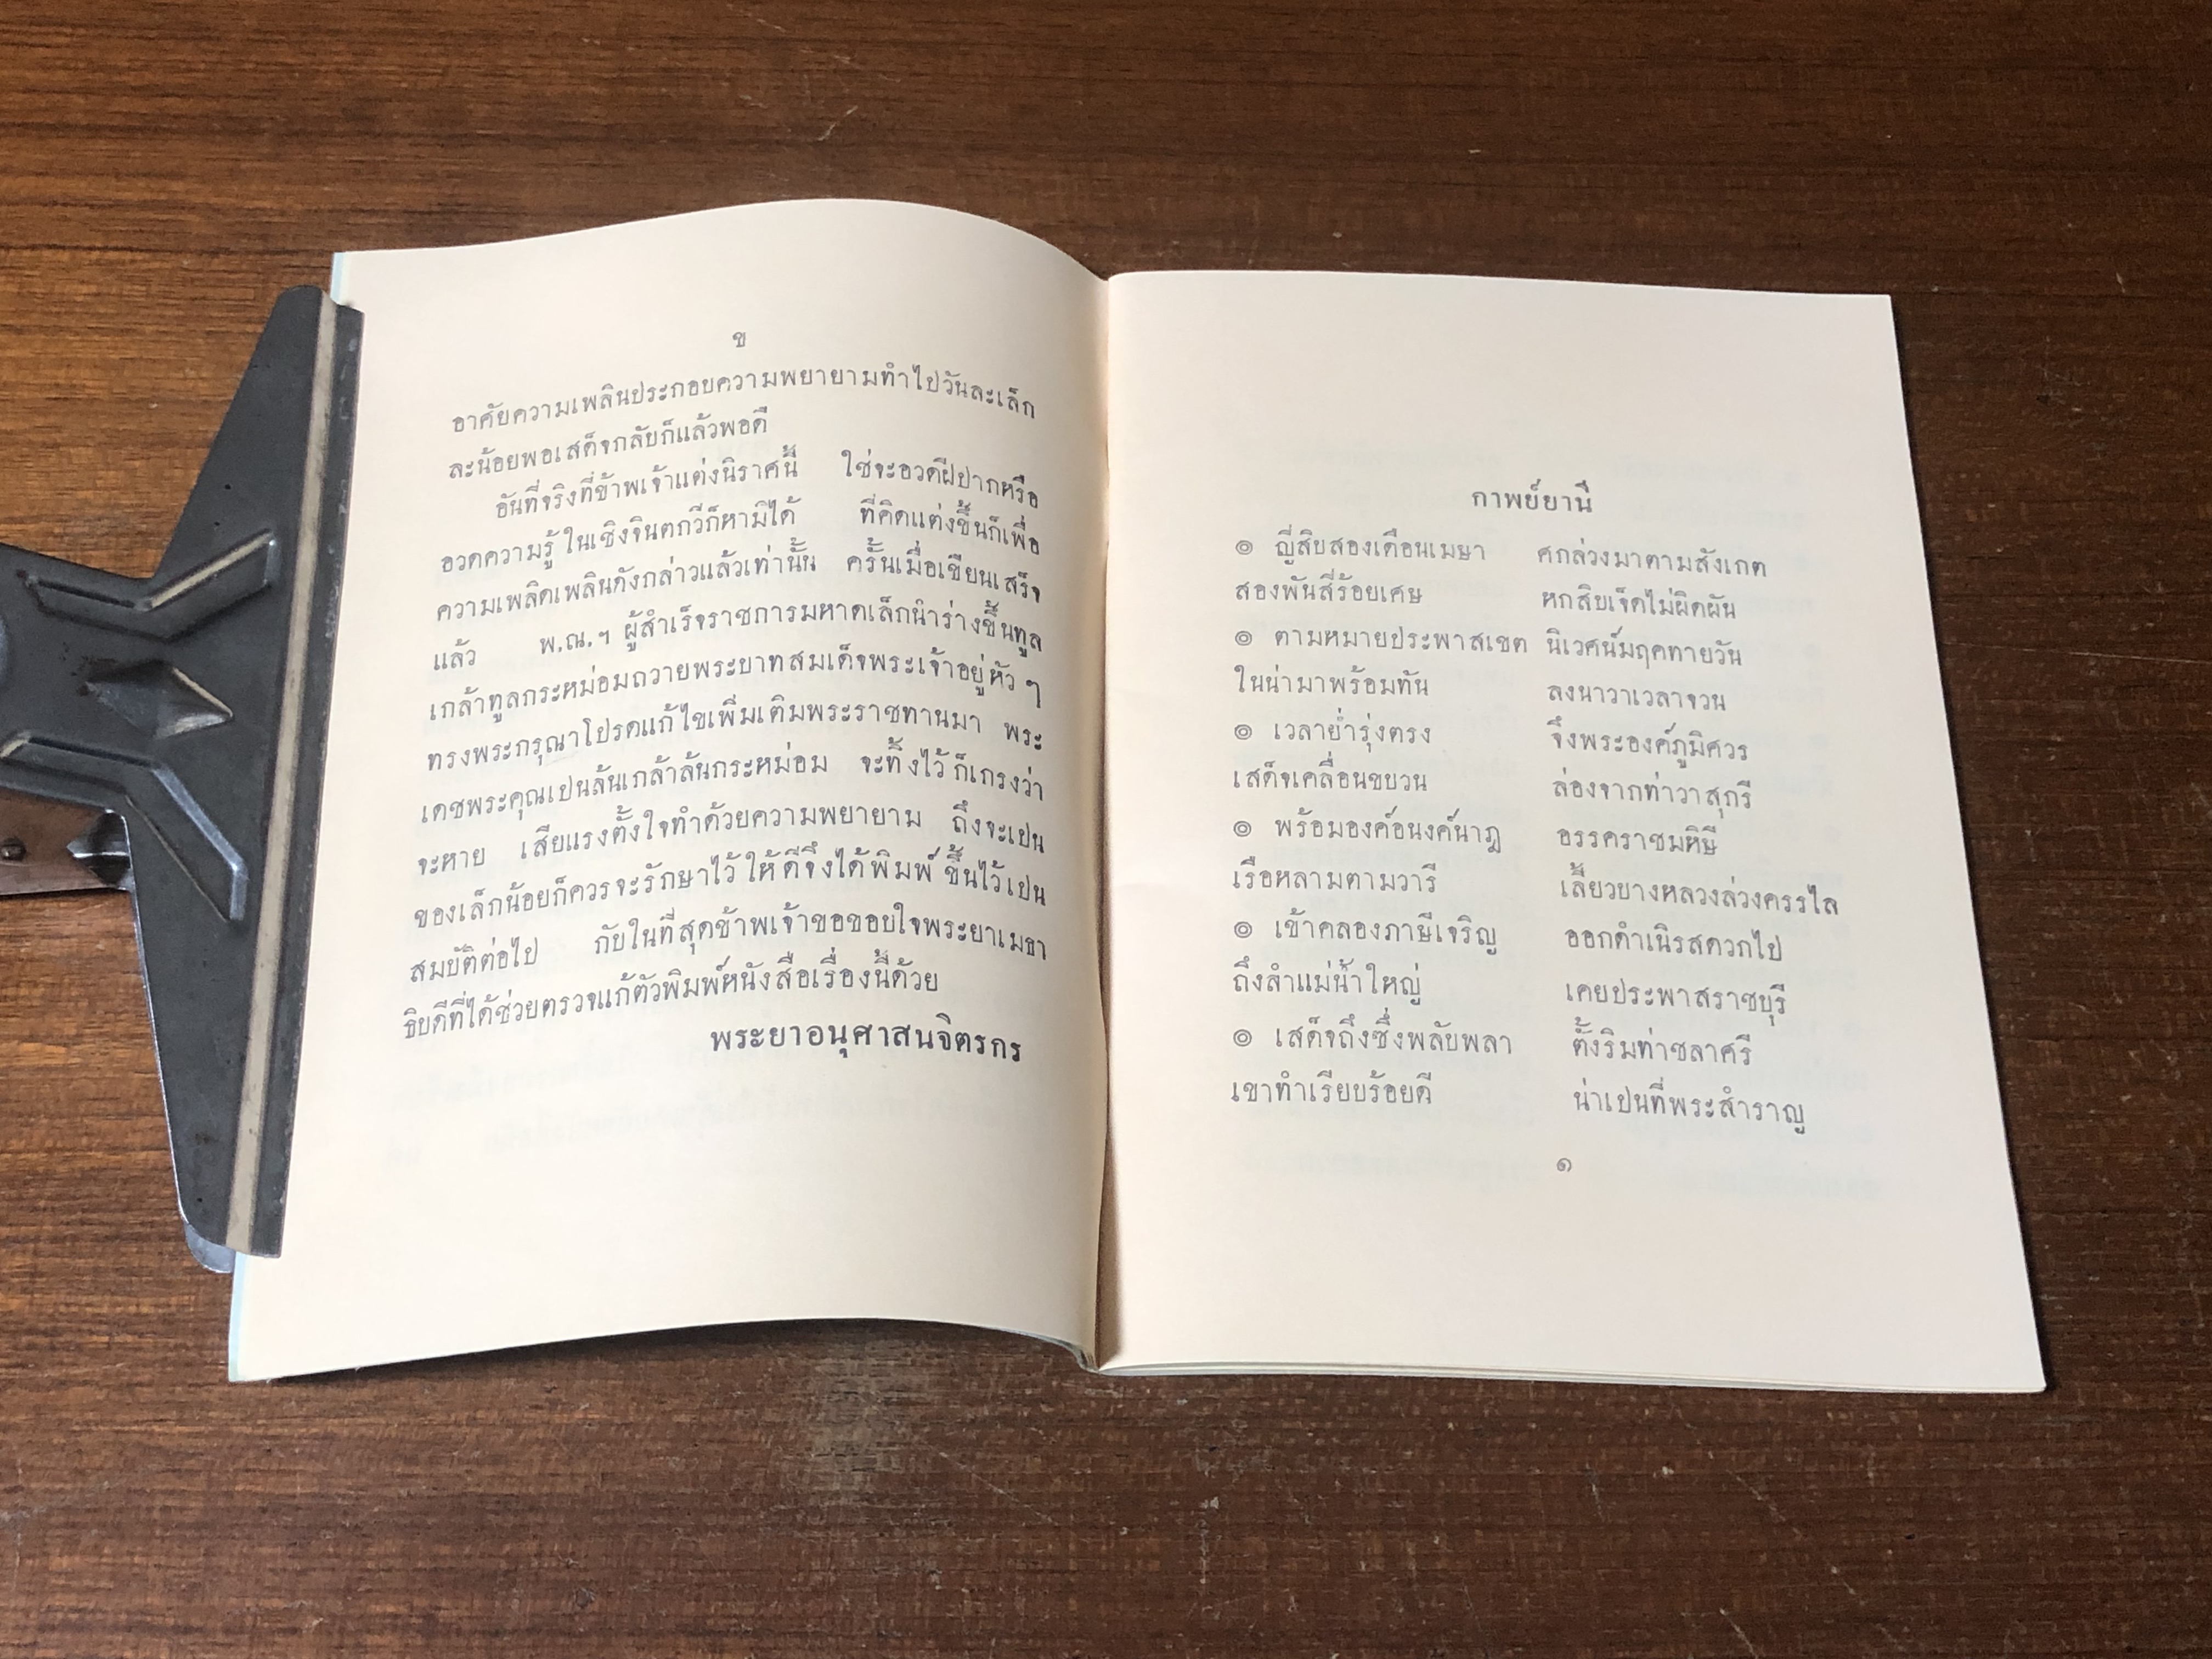 ข
อาศัยความเพลินประกอบความพยายามทำไปวันละเล็ก
ละน้อยพอเสด็จกลับก็แล้วพอดี
อันที่จริงที่ข้าพเจ้าแต่งนิราศนี้ ใช่จะอวดฝีปากหรือ
อวดความรู้ในเชิงจินตกวีก็หามิได้ ที่คิดแต่งขึ้นก็เพื่อ
ความเพลิดเพลินดังกล่าวแล้วเท่านั้น ครั้นเมื่อเขียนเสร็จ
แล้ว พ.ณ.ฯ ผู้สำเร็จราชการมหาดเล็กนำร่างขึ้นทูล
เกล้าทูลกระหม่อมถวายพระบาทสมเด็จพระเจ้าอยู่หัว ๆ
ทรงพระกรุณาโปรดแก้ไขเพิ่มเติมพระราชทานมา พระ
เดชพระคุณเปนล้นเกล้าล้นกระหม่อม จะทิ้งไว้ก็เกรงว่า
จะหาย เสียแรงตั้งใจทำด้วยความพยายาม ถึงจะเปน
ของเล็กน้อยก็ควรจะรักษาไว้ให้ดีจึงได้พิมพ์ขึ้นไว้เปน
สมบัติต่อไป กับในที่สุดข้าพเจ้าขอขอบใจพระยาเมธา
ธิบดีที่ได้ช่วยตรวจแก้ตัวพิมพ์หนังสือเรื่องนี้ด้วย
พระยาอนุศาสนจิตรกร
กาพย์ยานี
๏ ญี่สิบสองเดือนเมษา ศกล่วงมาตามสังเกต
สองพันสี่ร้อยเศษ หกสิบเจ็ดไม่ผิดผัน
๏ ตามหมายประพาสเขต นิเวศน์มฤคทายวัน
ในน่ามาพร้อมทัน ลงนาวาเวลาจวน
๏ เวลาย่ำรุ่งตรง จึงพระองค์ภูมิศวร
เสด็จเคลื่อนขบวน ล่องจากท่าวาสุกรี
๏ พร้อมองค์อนงค์นาฎ อรรคราชมหิษี
เรือหลามตามวารี เลี้ยวบางหลวงล่วงครรไล
๏ เข้าคลองภาษีเจริญ ออกดำเนิรสดวกไป
ถึงลำแม่น้ำใหญ่ เคยประพาสราชบุรี
๏ เสด็จถึงซึ่งพลับพลา ตั้งริมท่าชลาศรี
เขาทำเรียบร้อยดี น่าเปนที่พระสำราญ
๑